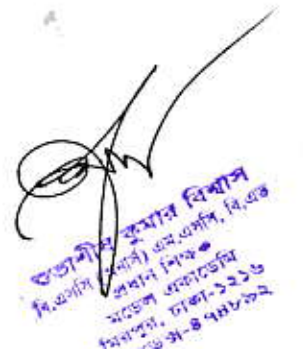 শুভাশীষ কুমার বিশ্বাস
বি.এসসি (অনার্স) এম.এসসি, বি.এড
প্রধান শিক্ষক
মডেল একাডেমি
মিরপুর, ঢাকা-১২১৬